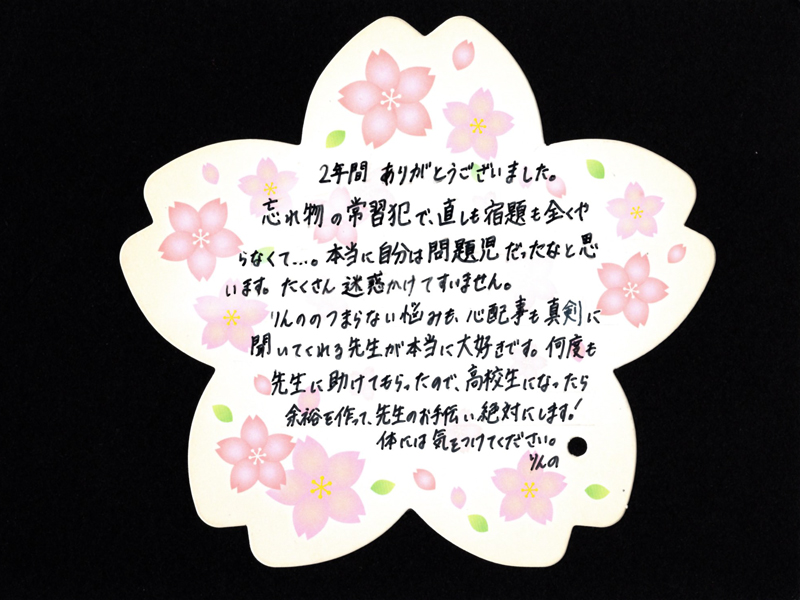 2年間 ありがとうございました。
忘れ物の常習犯で、直しも宿題も全くや
らなくて…。本当に自分は問題児だったなと思
います。たくさん迷惑かけてすいません。
りんののつまらない悩みも、心配事も真剣に
聞いてくれる先生が本当に大好きです。何度も
先生に助けてもらったので、高校生になったら
余裕を作って、先生のお手伝い絶対にします!
体には気をつけてください。
りんの